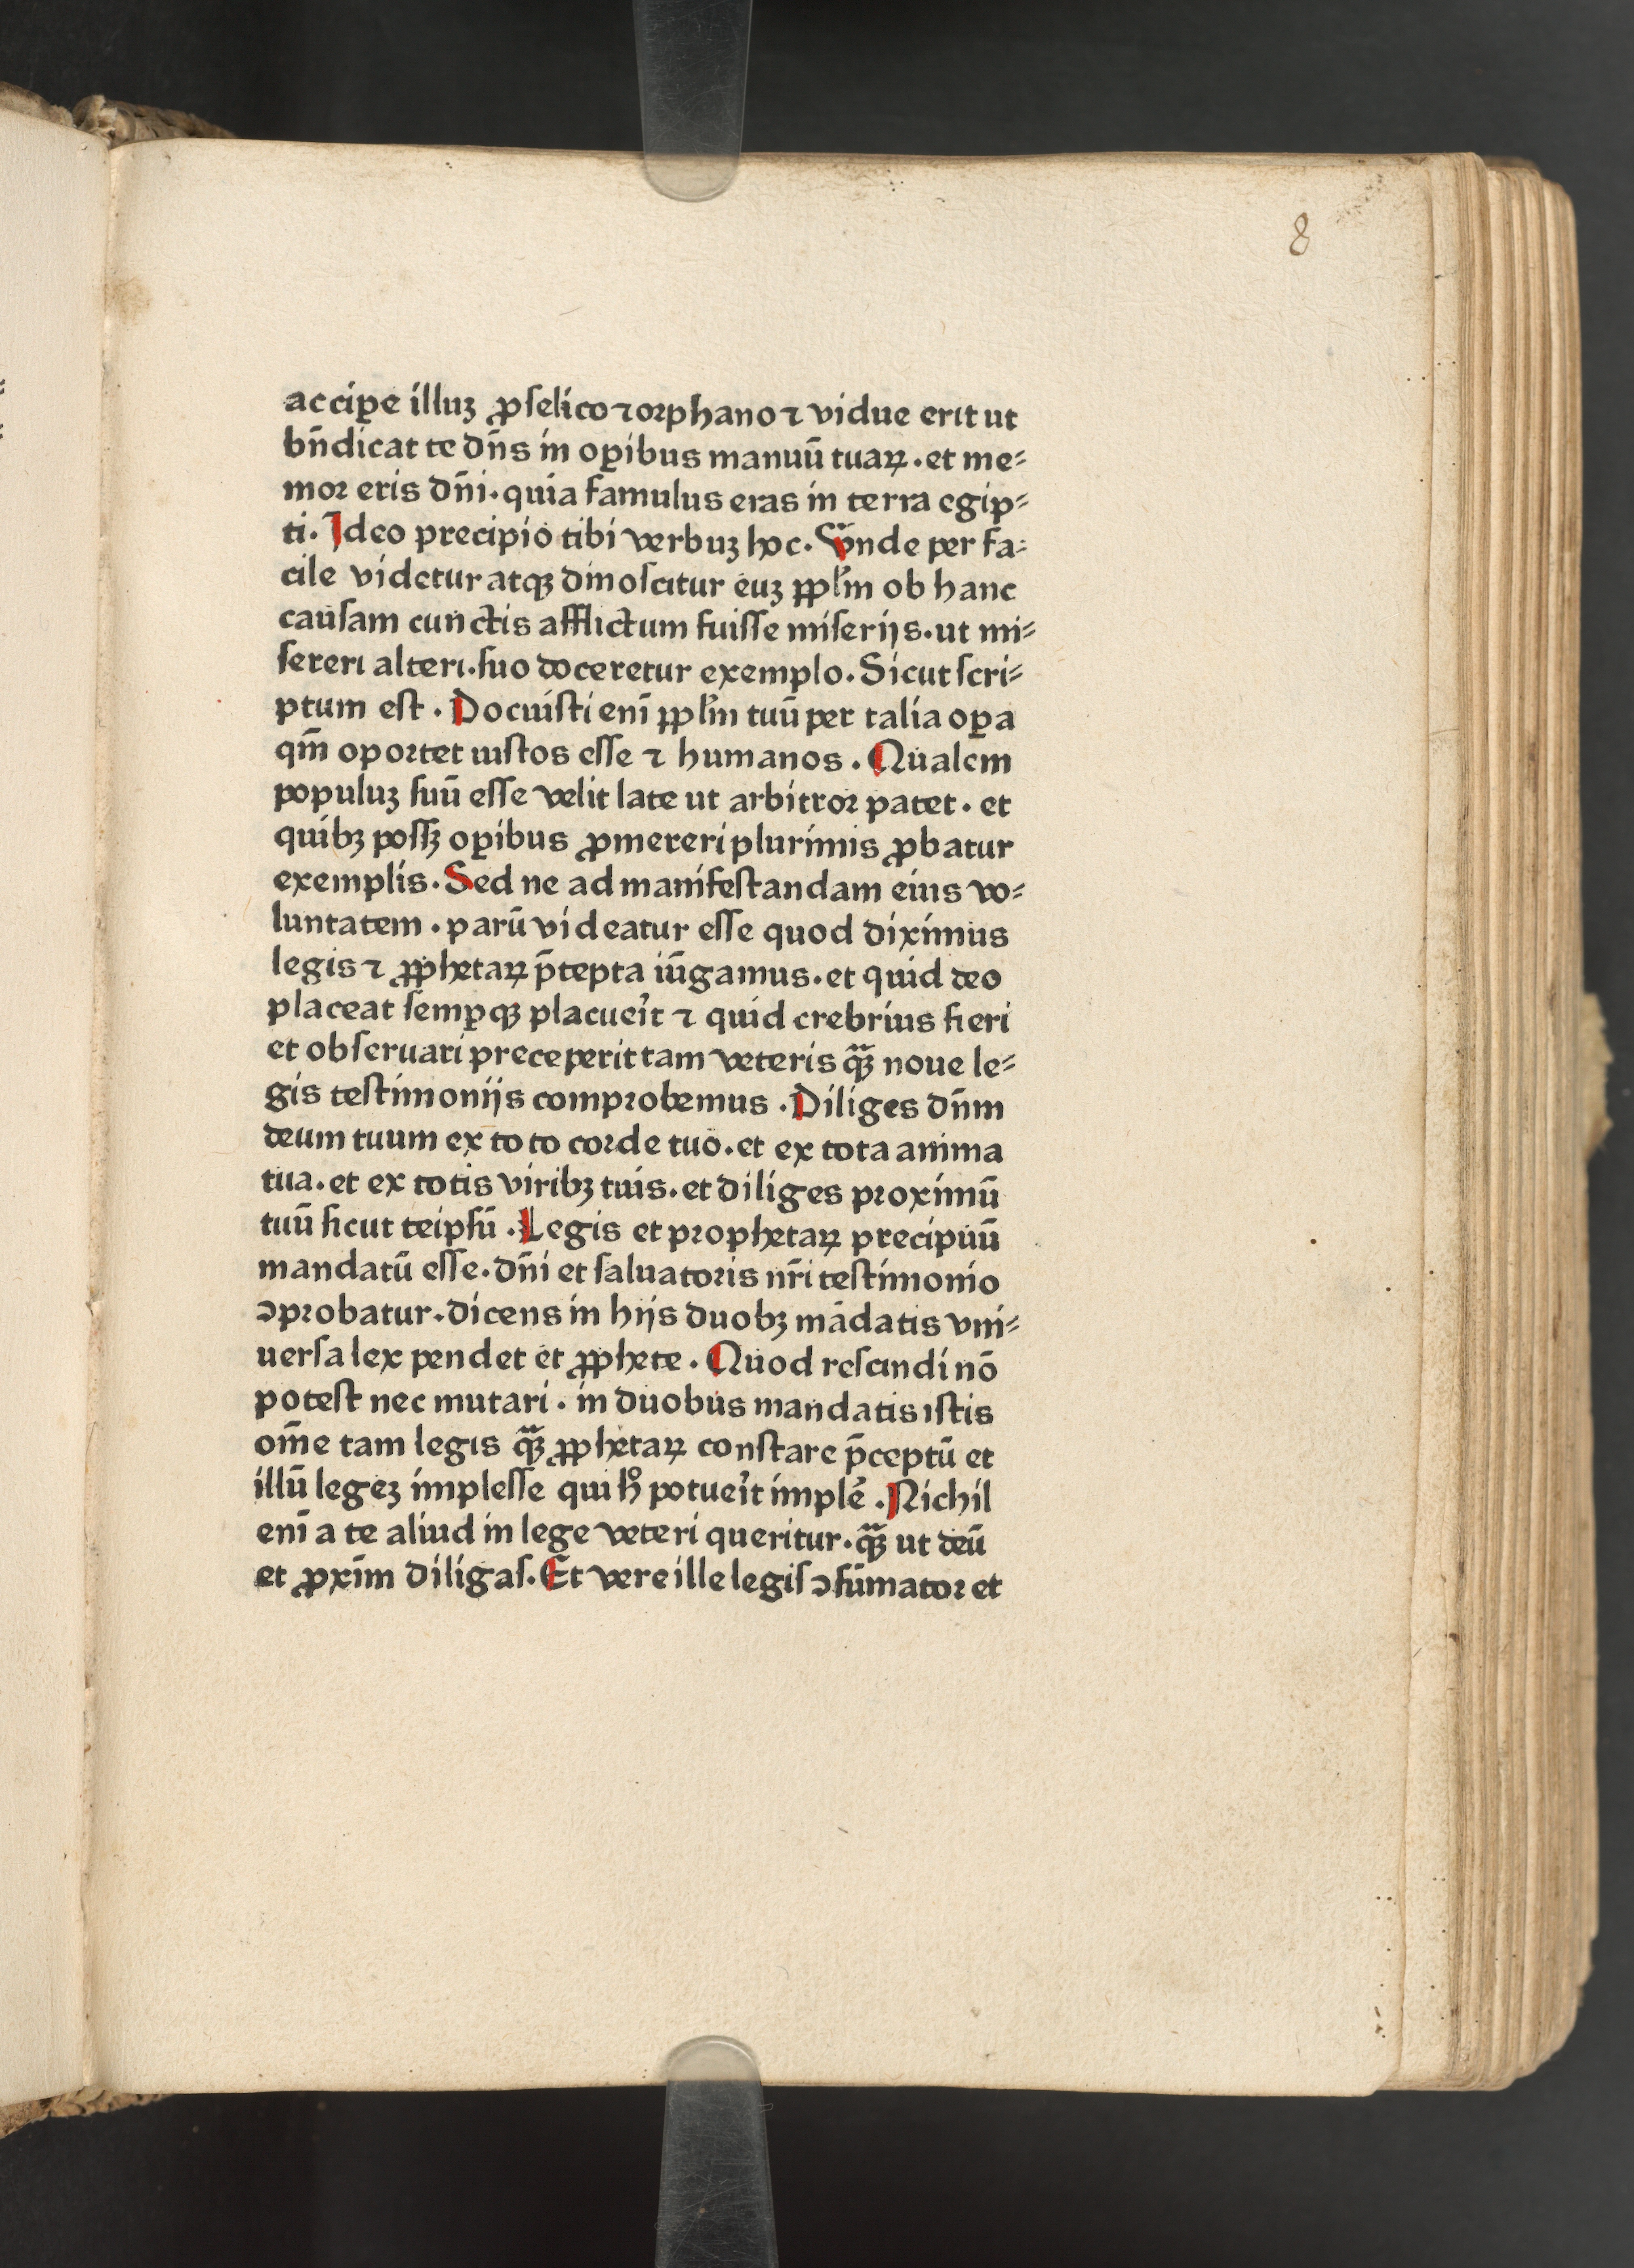 8
accipe illuꝫ ꝓſelico ⁊ orphano ⁊ vidue erit ut
bn̄dicat te dn̄s in oꝑibus manuū tuaꝝ. et me⸗
moꝛ eris dn̄i. quia famulus eras in terra egip⸗
ti. Ideo precipio tibi verbuꝫ hoc. Vnde per fa⸗
cile videtur atqꝫ dinoscitur euꝫ ꝑpl̄m ob hanc
causam cunctis afflictum fuiſſe miſerijs. ut mi⸗
ſereri alteri. ſuo doceretur exemplo. Sicut ſcri⸗
ptum eſt. Docuiſti enī ꝑpl̄m tuū per talia oꝑa
qm̄ opoꝛtet iuſtos eſſe ⁊ humanos. Qualem
populuꝫ ſuū eſſe velit late ut arbitroꝛ patet. et
quibꝫ poſſꝫ oꝑibus ꝓmereri plurimis ꝓbatur
exemplis. Sed ne ad manifeſtandam eius vo⸗
luntatem. parū videatur eſſe quod diximus
legis ⁊ ꝓphetaꝝ p̄tepta iūgamus. et quid deo
placeat ſemꝑqꝫ placueit̉ ⁊ quid crebrius fieri
et obſeruari preceperit tam veteris qꝫ̄ noue le⸗
gis teſtimonijs compꝛobemus. Diliges dn̄m
deum tuum ex toto coꝛde tuo. et ex tota anima
tua. et ex totis viribꝫ tuis. et diliges pꝛoximū
tuū ſicut teipſū. Legis et pꝛophetaꝝ precipuū
mandatū eſſe. dn̄i et ſaluatoꝛis nr̄i teſtimonio
ↄpꝛobatur. dicens in hijs duobꝫ mādatis vni⸗
uerſa lex pendet et ꝓphete. Quod reſcindi nō
poteſt nec mutari. in duobus mandatis iſtis
om̄e tam legis qꝫ̄ ꝓphetaꝝ conſtare p̄ceptū et
illū legeꝫ impleſſe qui hͦ potueit̉ implē. Nichil
enī a te aliud in lege veteri queritur. qꝫ̄ ut deū
et ꝓxim̄ diligaſ. Et vere ille legiſ ↄſūmatoꝛ et